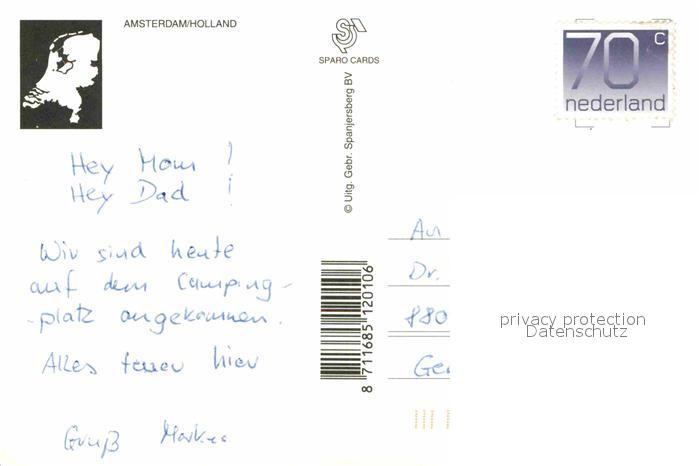 AMSTERDAM/HOLLAND
SPARO CARDS
© Uitg. Gebr. Spanjersberg BV
70 c
nederland
Hey Mom !
Hey Dad !
Wir sind heute
auf dem Camping-
-platz angekommen.
Alles teuer hier
Gruß Markus
8 711685 120106
An
Dr.
880
Ger
privacy protection
Datenschutz